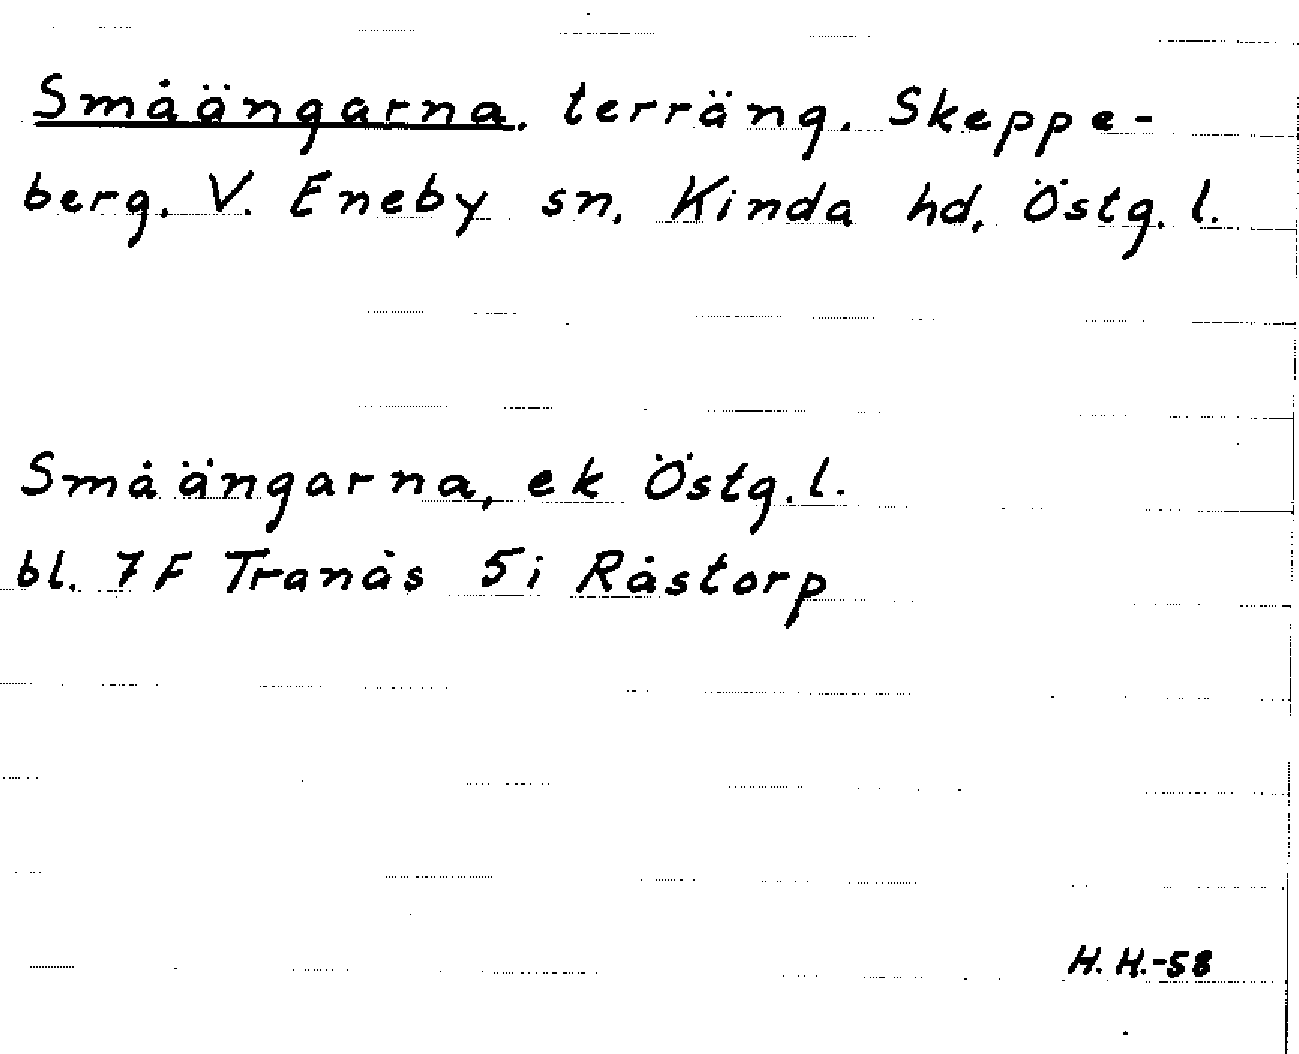 Småängarna, terräng, Skeppe-
berg, V. Eneby sn, Kinda hd, Östg. l.
Småängarna, ek Östg. l.
bl. 7F Tranås 5i Råstorp
H. H.-58